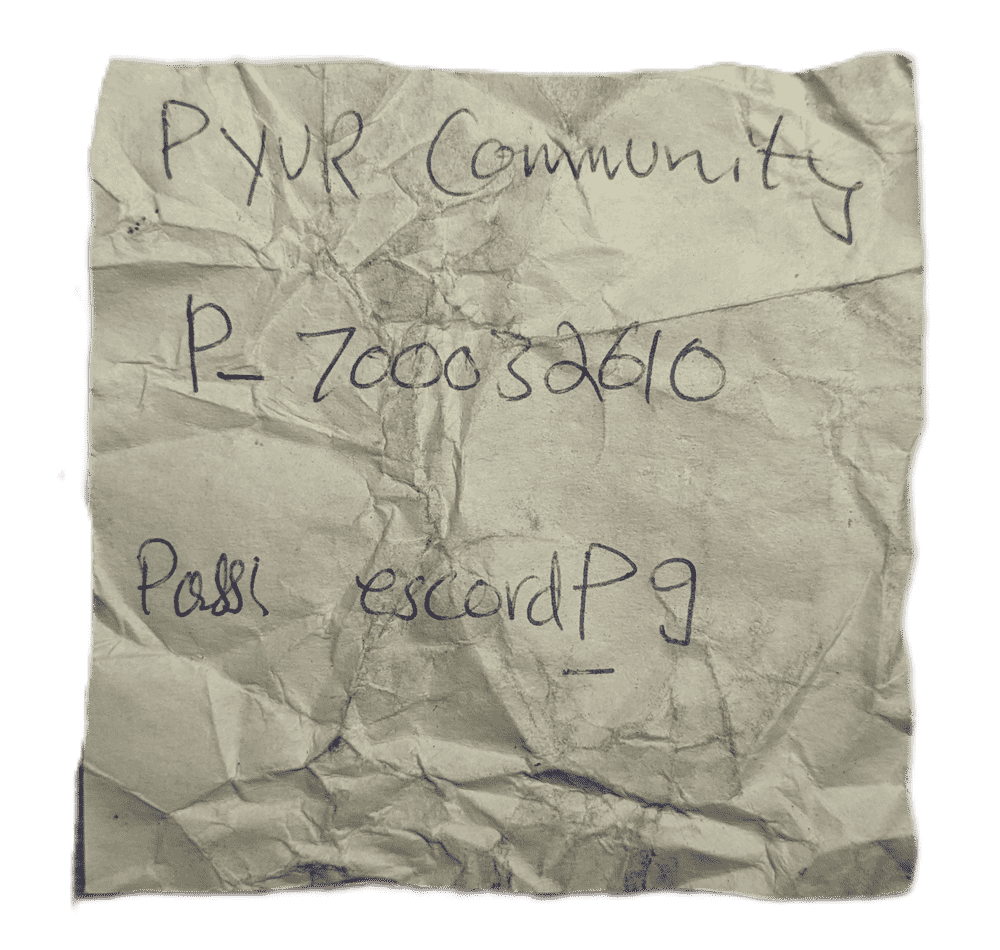 PYUR Community
P_ 700032610
Pass: escordP g